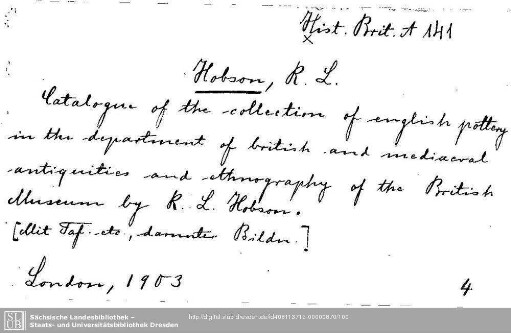 Hist. Brit. A 141
Hobson, R. L.
Catalogue of the collection of english pottery
in the department of british and mediaeval
antiquities and ethnography of the British
Museum by R. L. Hobson.
[Mit Taf. etc., darunter Bildn.]
London, 1903
4
Sächsische Landesbibliothek –
Staats- und Universitätsbibliothek Dresden